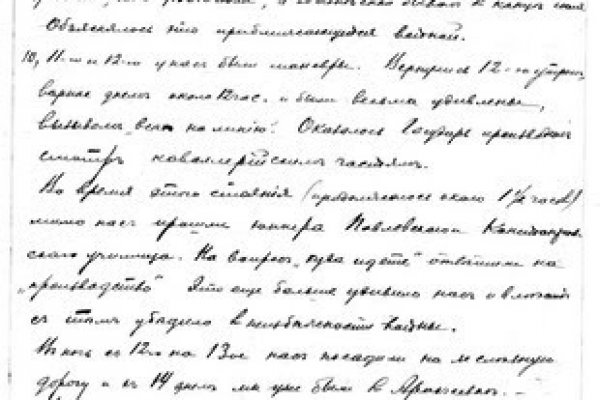 Объяснялось это приближающейся войной.
10, 11-го и 12-го у нас были маневры. Вернулись 12-го утром,
вернее днем около 12 час. и были весьма удивлены,
вызовом „всех на линию“. Оказалось Государь производит
смотр кавалерийским частям.
Во время этого стояния (продолжалось около 1½ часов)
мимо нас прошли юнкера Павловского Константинов-
ского училища. На вопрос „куда идете“ ответили на
„производство“ Это еще больше удивило нас и
с тем убедило в неизбежности войны.
В ночь с 12го на 13ое нас посадили на железную
дорогу и с 14 днем мы уже были в